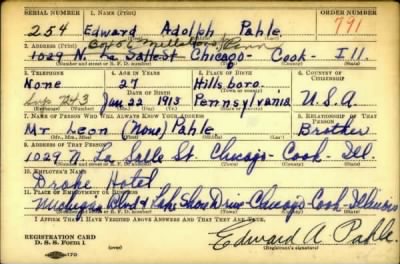 SERIAL NUMBER 1. NAME (Print) ORDER NUMBER
254 Edward Adolph Pahle 791
(First) (Middle) (Last)
2. ADDRESS (Print)
1029 N. La Salle St. Chicago - Cook - Ill.
(Number and street or R. F. D. number) (Town) (County) (State)
3. TELEPHONE 4. AGE IN YEARS 5. PLACE OF BIRTH 6. COUNTRY OF CITIZENSHIP
None 27 Hillsboro. U.S.A.
DATE OF BIRTH
Jan 22 1913 Pennsylvania
7. NAME OF PERSON WHO WILL ALWAYS KNOW YOUR ADDRESS 8. RELATIONSHIP OF THAT PERSON
Mr Leon (None) Pahle Brother
(Mr., Mrs., Miss) (First) (Middle) (Last)
9. ADDRESS OF THAT PERSON
1029 N. La Salle St. Chicago - Cook - Ill.
(Number and street or R. F. D. number) (Town) (County) (State)
10. EMPLOYER'S NAME
Drake Hotel
11. PLACE OF EMPLOYMENT OR BUSINESS
Michigan Blvd & Lake Shore Drive - Chicago - Cook - Illinois
(Number and street or R. F. D. number) (Town) (County) (State)
I AFFIRM THAT I HAVE VERIFIED ABOVE ANSWERS AND THAT THEY ARE TRUE.
REGISTRATION CARD
D. S. S. Form 1 Edward A. Pahle.
(Registrant's signature)